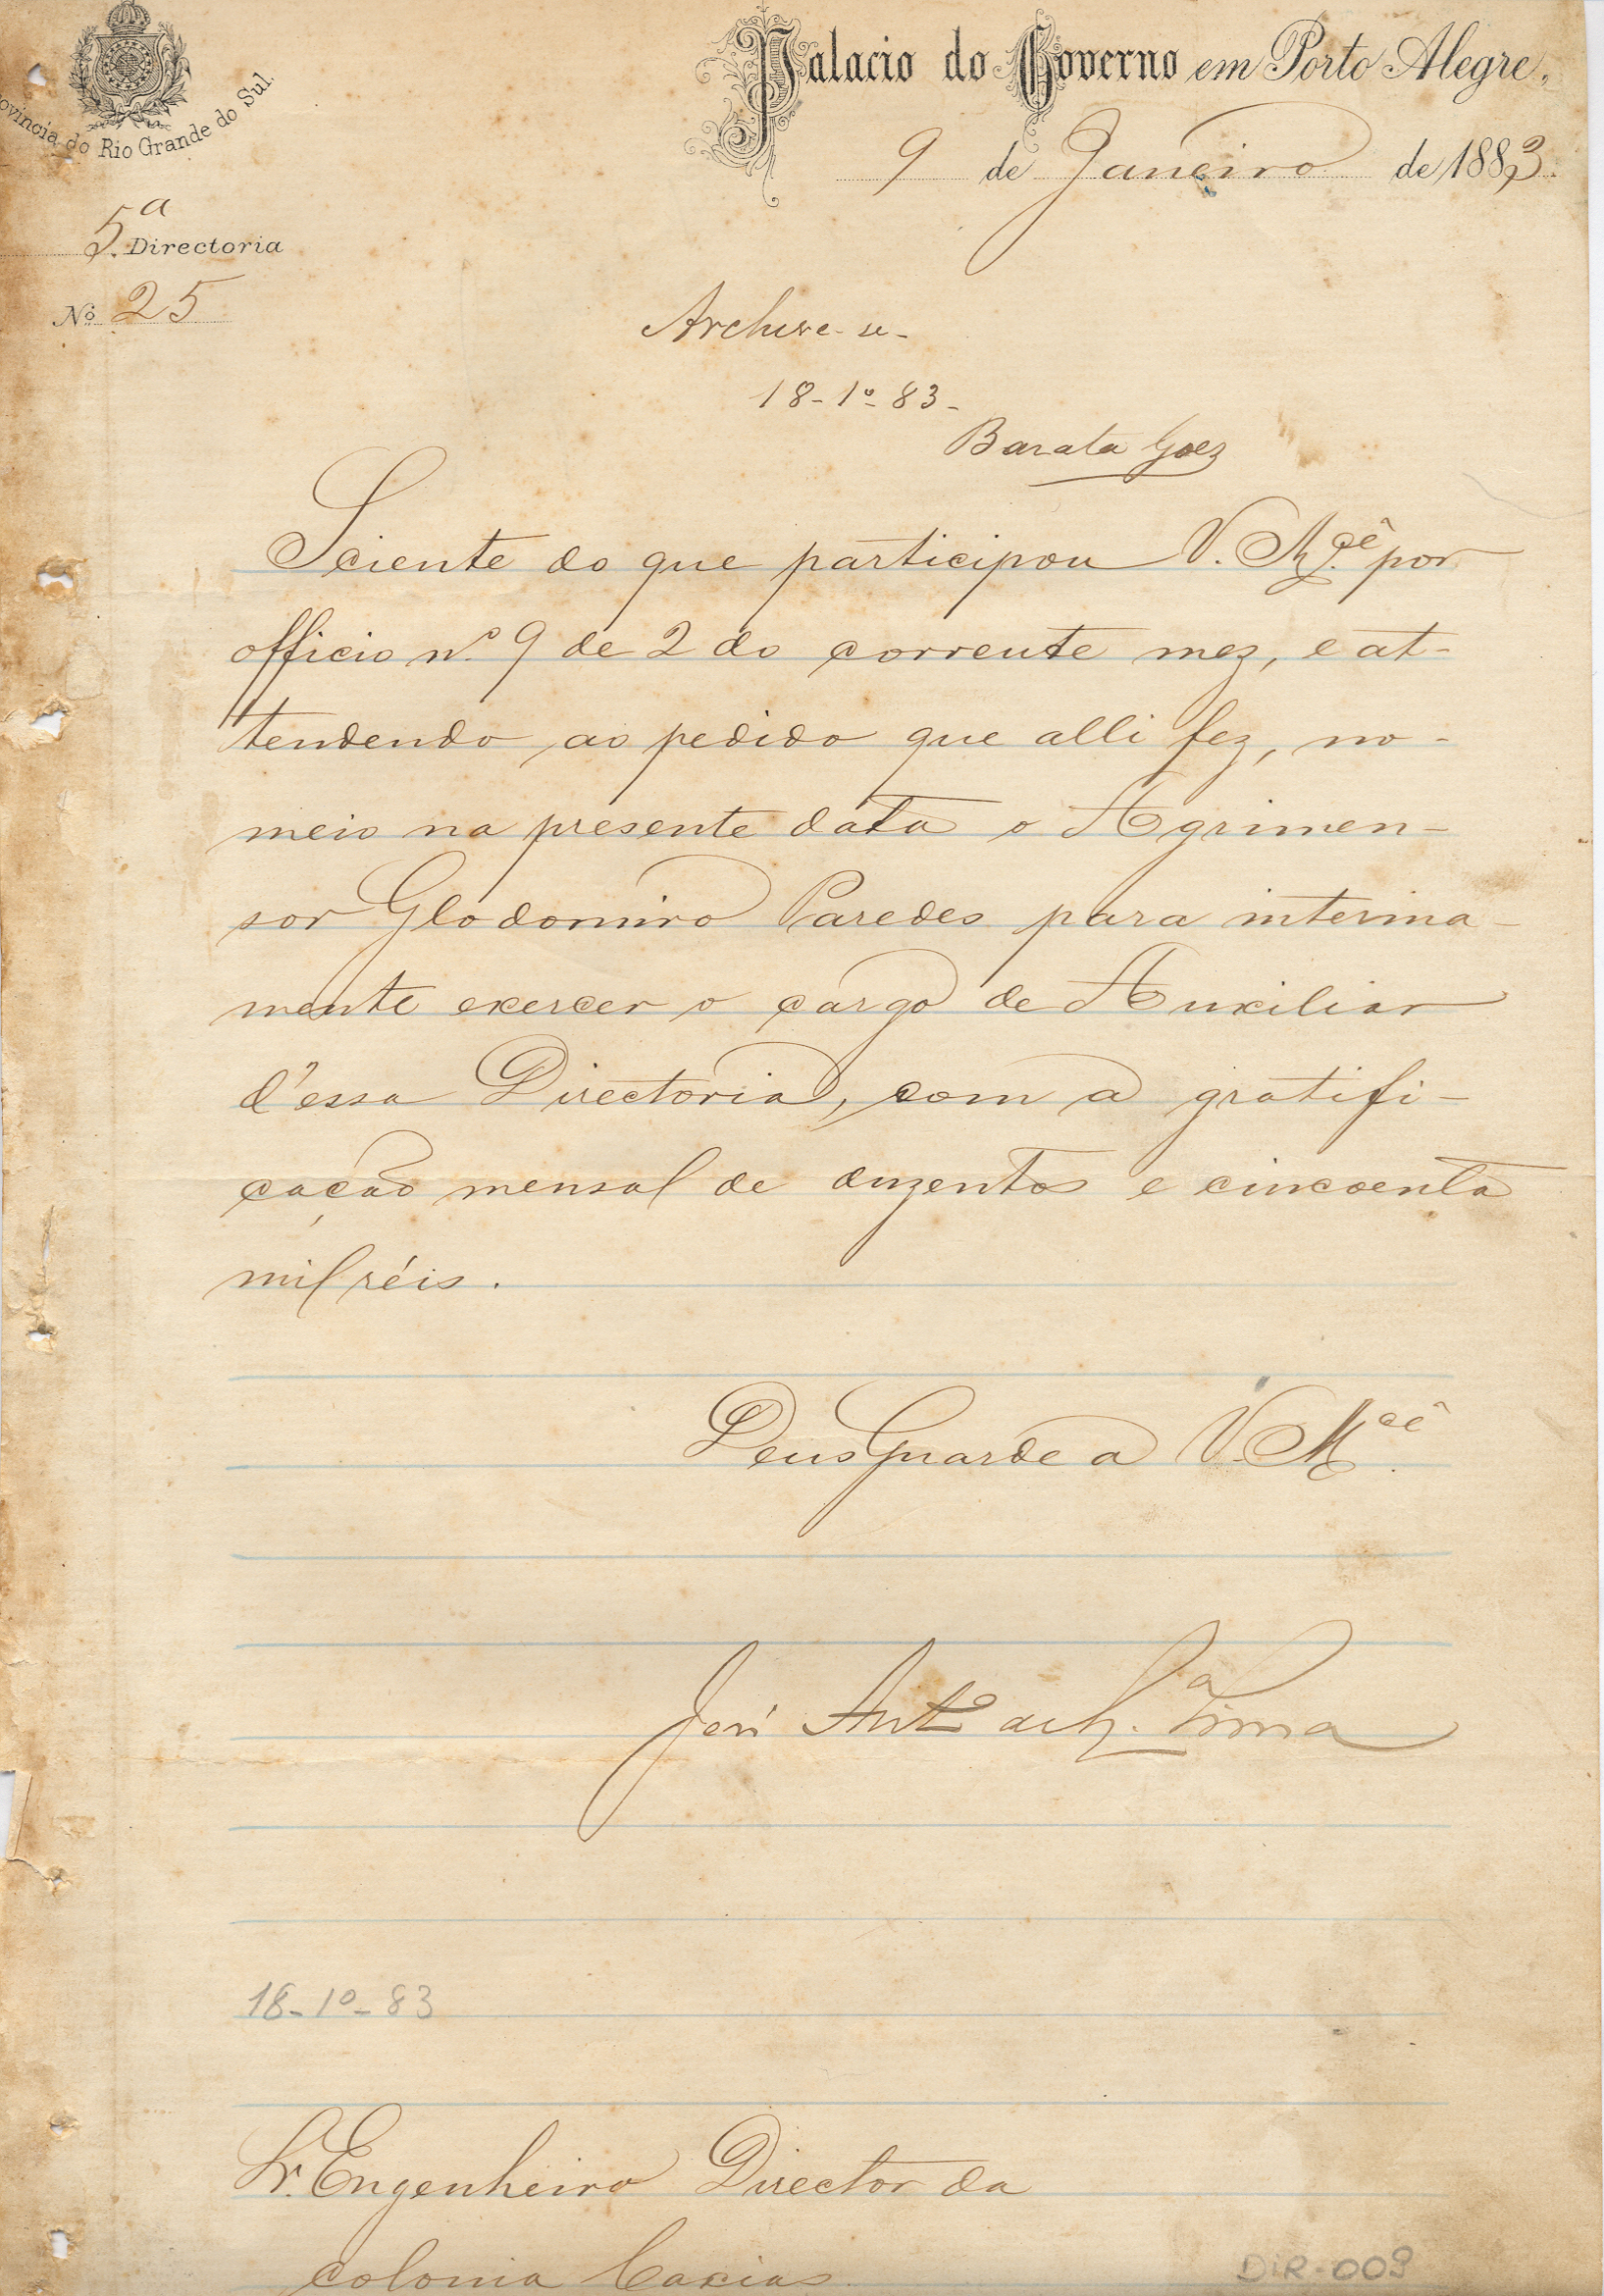 Provincia do Rio Grande do Sul.
Palacio do Governo em Porto Alegre,
9 de Janeiro de 1883.
5ª Directoria
Nº 25
Archive-se-
18-1º-83-
Barata Goes
Sciente do que participou V. Mcê por
officio nº 9 de 2 do corrente mez, e at-
tendendo ao pedido que alli fez, no-
meio na presente data o Agrimen-
sor Glodomiro Paredes para interina-
mente exercer o cargo de Auxiliar
d'essa Directoria, com a gratifi-
cação mensal de duzentos e cincoenta
mil réis.
Deus Guarde a V. Mcê.
José Antº Lima
18-1º-83
Sr. Engenheiro Director da
colonia Caxias
DIR-009